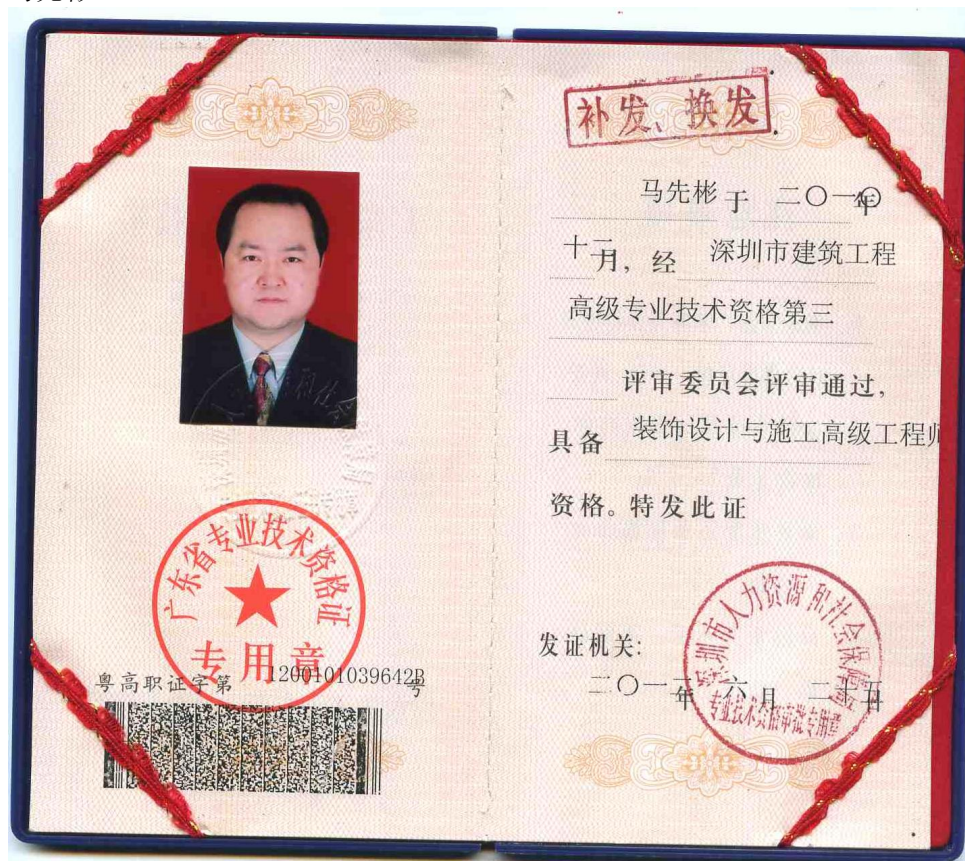 广东省专业技术资格证
专用章
粤高职证字第 1200101039642B 号
补发、换发
马先彬 于 二〇一〇年
十二月，经 深圳市建筑工程
高级专业技术资格第三
评审委员会评审通过，
具备 装饰设计与施工高级工程师
资格。特发此证
发证机关：
深圳市人力资源和社会保障局
专业技术资格审批专用章
二〇一 年 六月 二十 日